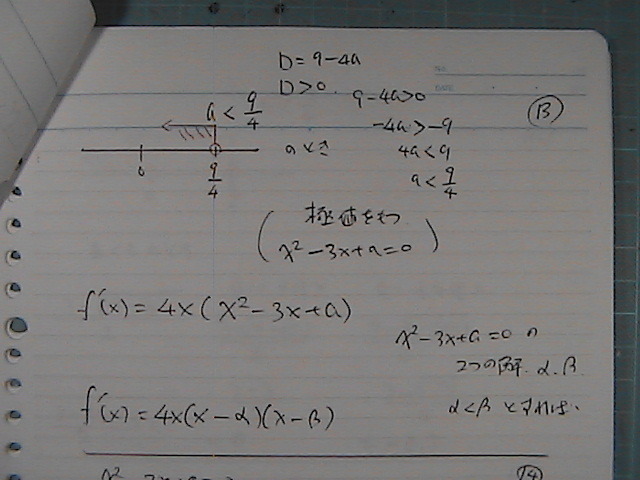 D = 9-4a
D>0.
9-4a>0
B
a < 9/4
-4a>-9
4a<9
a < 9/4
0
9/4
aのとき
極値をもつ
( x² -3x+a=0 )
f'(x) = 4x(x²-3x+a)
x²-3x+a=0 の
2つの解. α.β.
f'(x) = 4x(x-α)(x-β)
α<β とすれば.
14